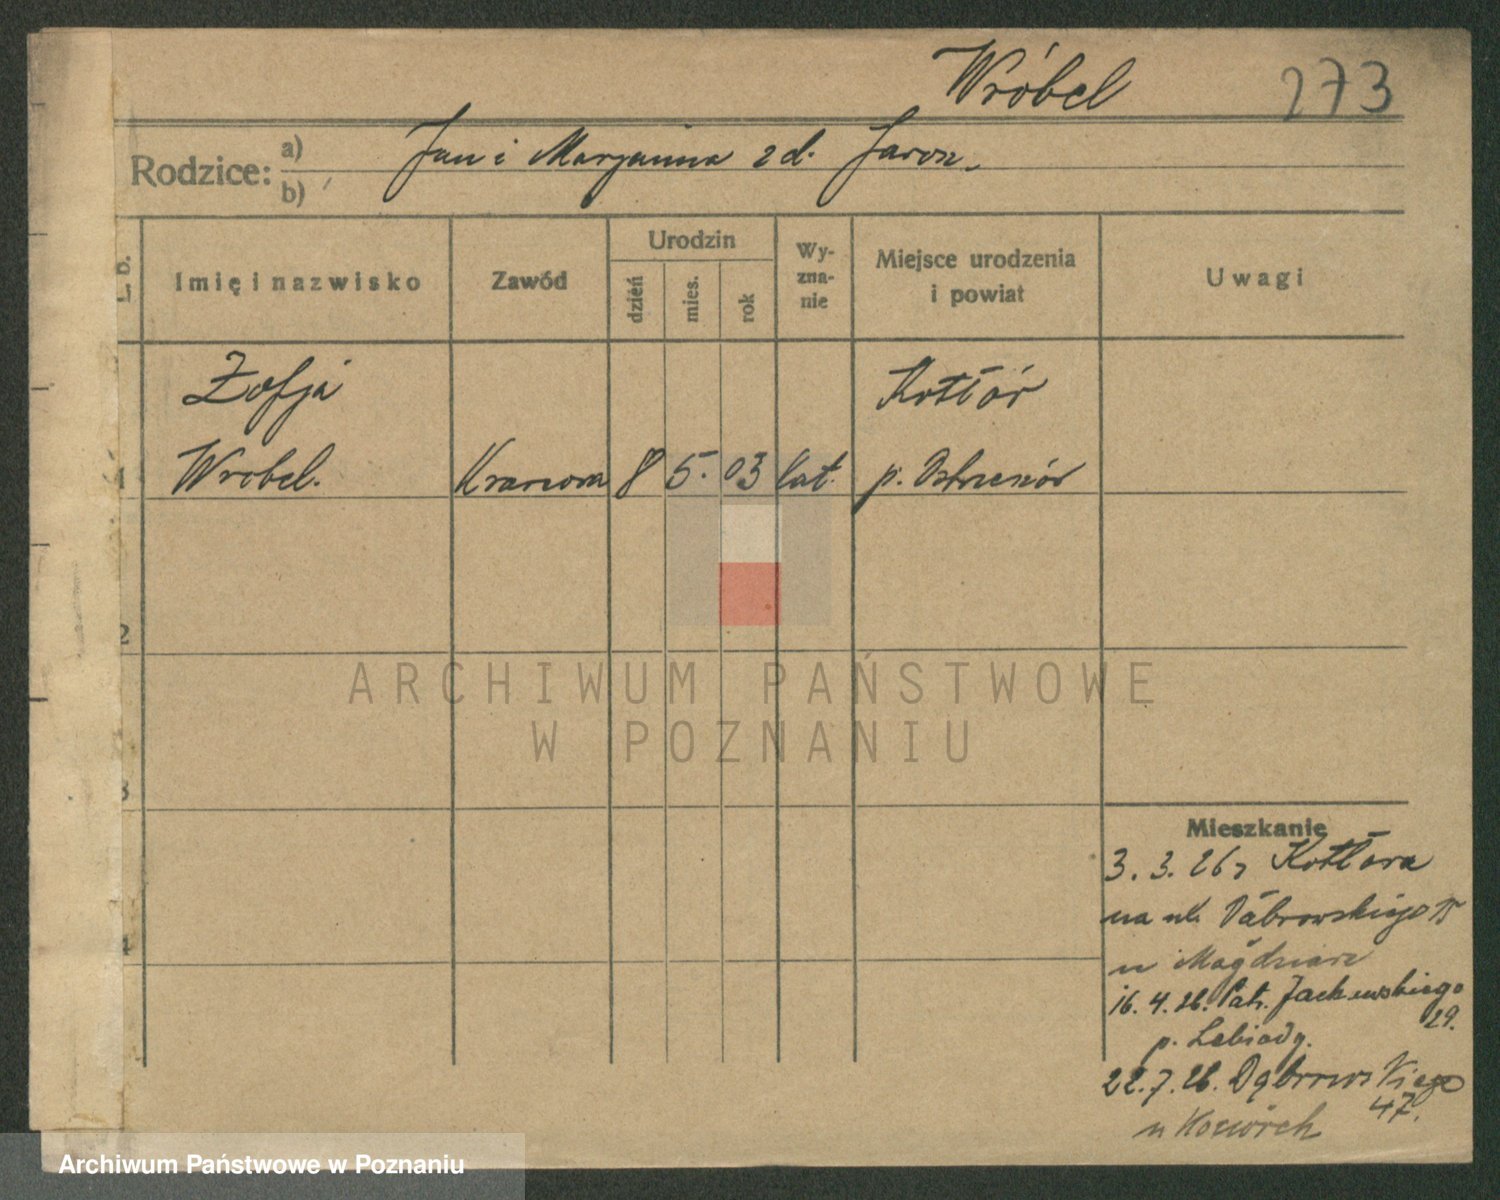 Wróbel 273
Rodzice: a) Jan i Marjanna z d. Jarosz.
b)
L. b. Imię i nazwisko Zawód Urodzin dzień mies. rok Wyznanie Miejsce urodzenia i powiat Uwagi
Zofja Kotłów
1 Wrobel. 8 5. 03 kat. p. Ostrzeszów
2
ARCHIWUM PAŃSTWOWE
W POZNANIU
3
Mieszkanie
3. 3. 26 z Kotłowa
4 na ul. Dąbrowskiego
u
16. 4. 26. Patr. Jackowskiego
29.
p. Lebiody.
22. 7. 26. Dąbrowskiego
47.
u
Archiwum Państwowe w Poznaniu